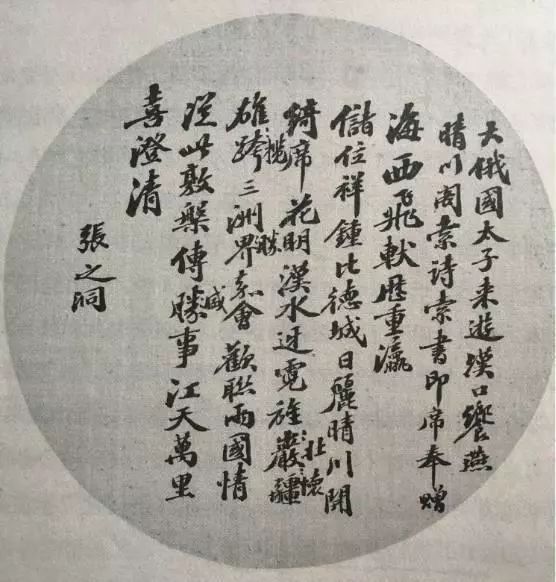 大俄國太子來遊漢口饗燕
晴川閣索詩索書即席奉贈
海西飛軑歷重瀛
儲位祥鍾比德城日麗晴川開
壯懷
綺席花明漢水迓霓旌嚴疆
攬
勝
雄跨三洲界嘉會歡聯兩國情
盛
從此敦槃傳勝事江天萬里
喜澄清
張之洞